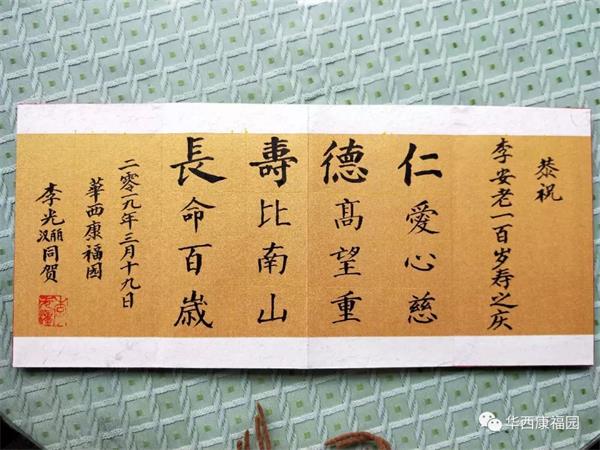 恭祝
李安老一百岁寿之庆
仁愛心慈
德髙望重
壽比南山
長命百歳
二零一九年三月十九日
華西康福園
李光丽同贺
华西康福园